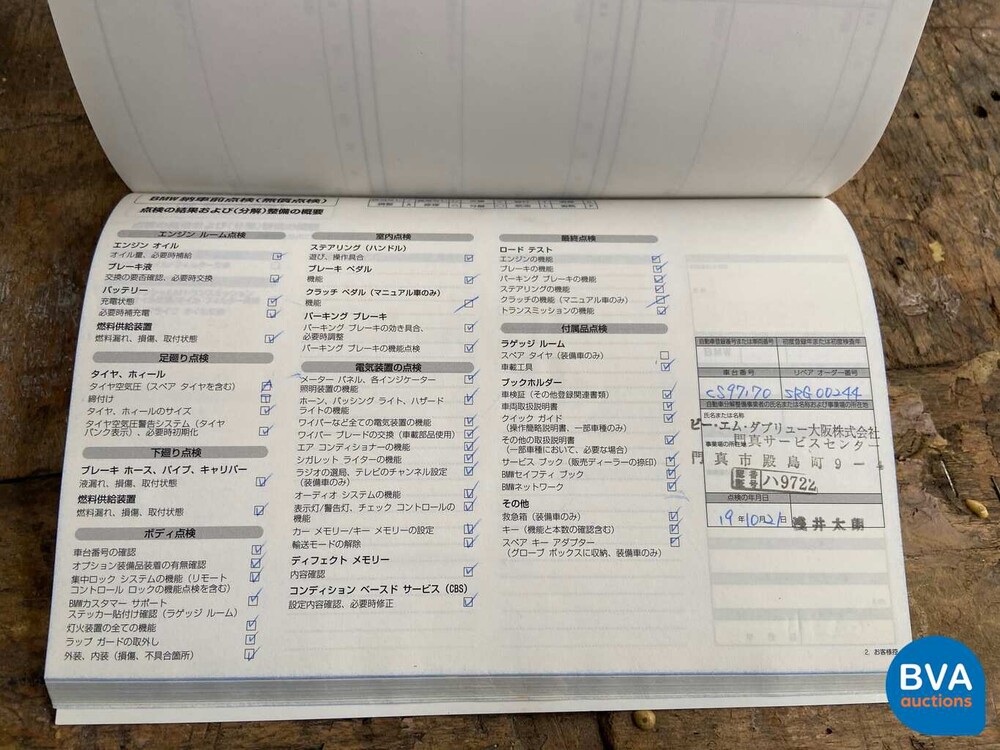 BMW 納車前点検(無償点検)
点検の結果および(分解)整備の概要
エンジン ルーム点検
エンジン オイル
オイル量、必要時補給
ブレーキ液
交換の要否確認、必要時交換
バッテリー
充電状態
必要時補充電
燃料供給装置
燃料漏れ、損傷、取付状態
足廻り点検
タイヤ、ホィール
タイヤ空気圧(スペア タイヤを含む)
締付け
タイヤ、ホィールのサイズ
タイヤ空気圧警告システム(タイヤ
パンク表示)、必要時初期化
下廻り点検
ブレーキ ホース、パイプ、キャリパー
液漏れ、損傷、取付状態
燃料供給装置
燃料漏れ、損傷、取付状態
ボディ点検
車台番号の確認
オプション装備品装着の有無確認
集中ロック システムの機能(リモート
コントロール ロックの機能点検を含む)
BMWカスタマー サポート
ステッカー貼付け確認(ラゲッジ ルーム)
灯火装置の全ての機能
ラップ ガードの取外し
外装、内装(損傷、不具合箇所)
室内点検
ステアリング(ハンドル)
遊び、操作具合
ブレーキ ペダル
機能
クラッチ ペダル(マニュアル車のみ)
機能
パーキング ブレーキ
パーキング ブレーキの効き具合、
必要時調整
パーキング ブレーキの機能点検
電気装置の点検
メーター パネル、各インジケーター
照明装置の機能
ホーン、パッシング ライト、ハザード
ライトの機能
ワイパーなど全ての電気装置の機能
ワイパー ブレードの交換(車載部品使用)
エア コンディショナーの機能
シガレット ライターの機能
ラジオの選局、テレビのチャンネル設定
(装備車のみ)
オーディオ システムの機能
表示灯/警告灯、チェック コントロールの
機能
カー メモリー/キー メモリーの設定
輸送モードの解除
ディフェクト メモリー
内容確認
コンディション ベースド サービス(CBS)
設定内容確認、必要時修正
最終点検
ロード テスト
エンジンの機能
ブレーキの機能
パーキング ブレーキの機能
ステアリングの機能
クラッチの機能(マニュアル車のみ)
トランスミッションの機能
付属品点検
ラゲッジ ルーム
スペア タイヤ(装備車のみ)
車載工具
ブックホルダー
車検証(その他登録関連書類)
車両取扱説明書
クイック ガイド
(操作簡略説明書、一部車種のみ)
その他の取扱説明書
(一部車種において、必要な場合)
サービス ブック(販売ディーラーの捺印)
BMWセイフティ ブック
BMWネットワーク
その他
救急箱(装備車のみ)
キー(機能と本数の確認含む)
スペア キー アダプター
(グローブ ボックスに収納、装備車のみ)
自動車登録番号または車両番号 初度登録年または初度検査年
車台番号 リペア オーダー番号
CS97170 SRG00244
自動車分解整備事業者の氏名または名称および事業場の所在地
氏名または名称
ビー・エム・ダブリュー大阪株式会社
事業場の所在地 門真サービスセンター
門真市殿島町9-4
認証番号 ハ9722
点検の年月日
19年10月21日 浅井太朗
2. お客様控
BVA
auctions